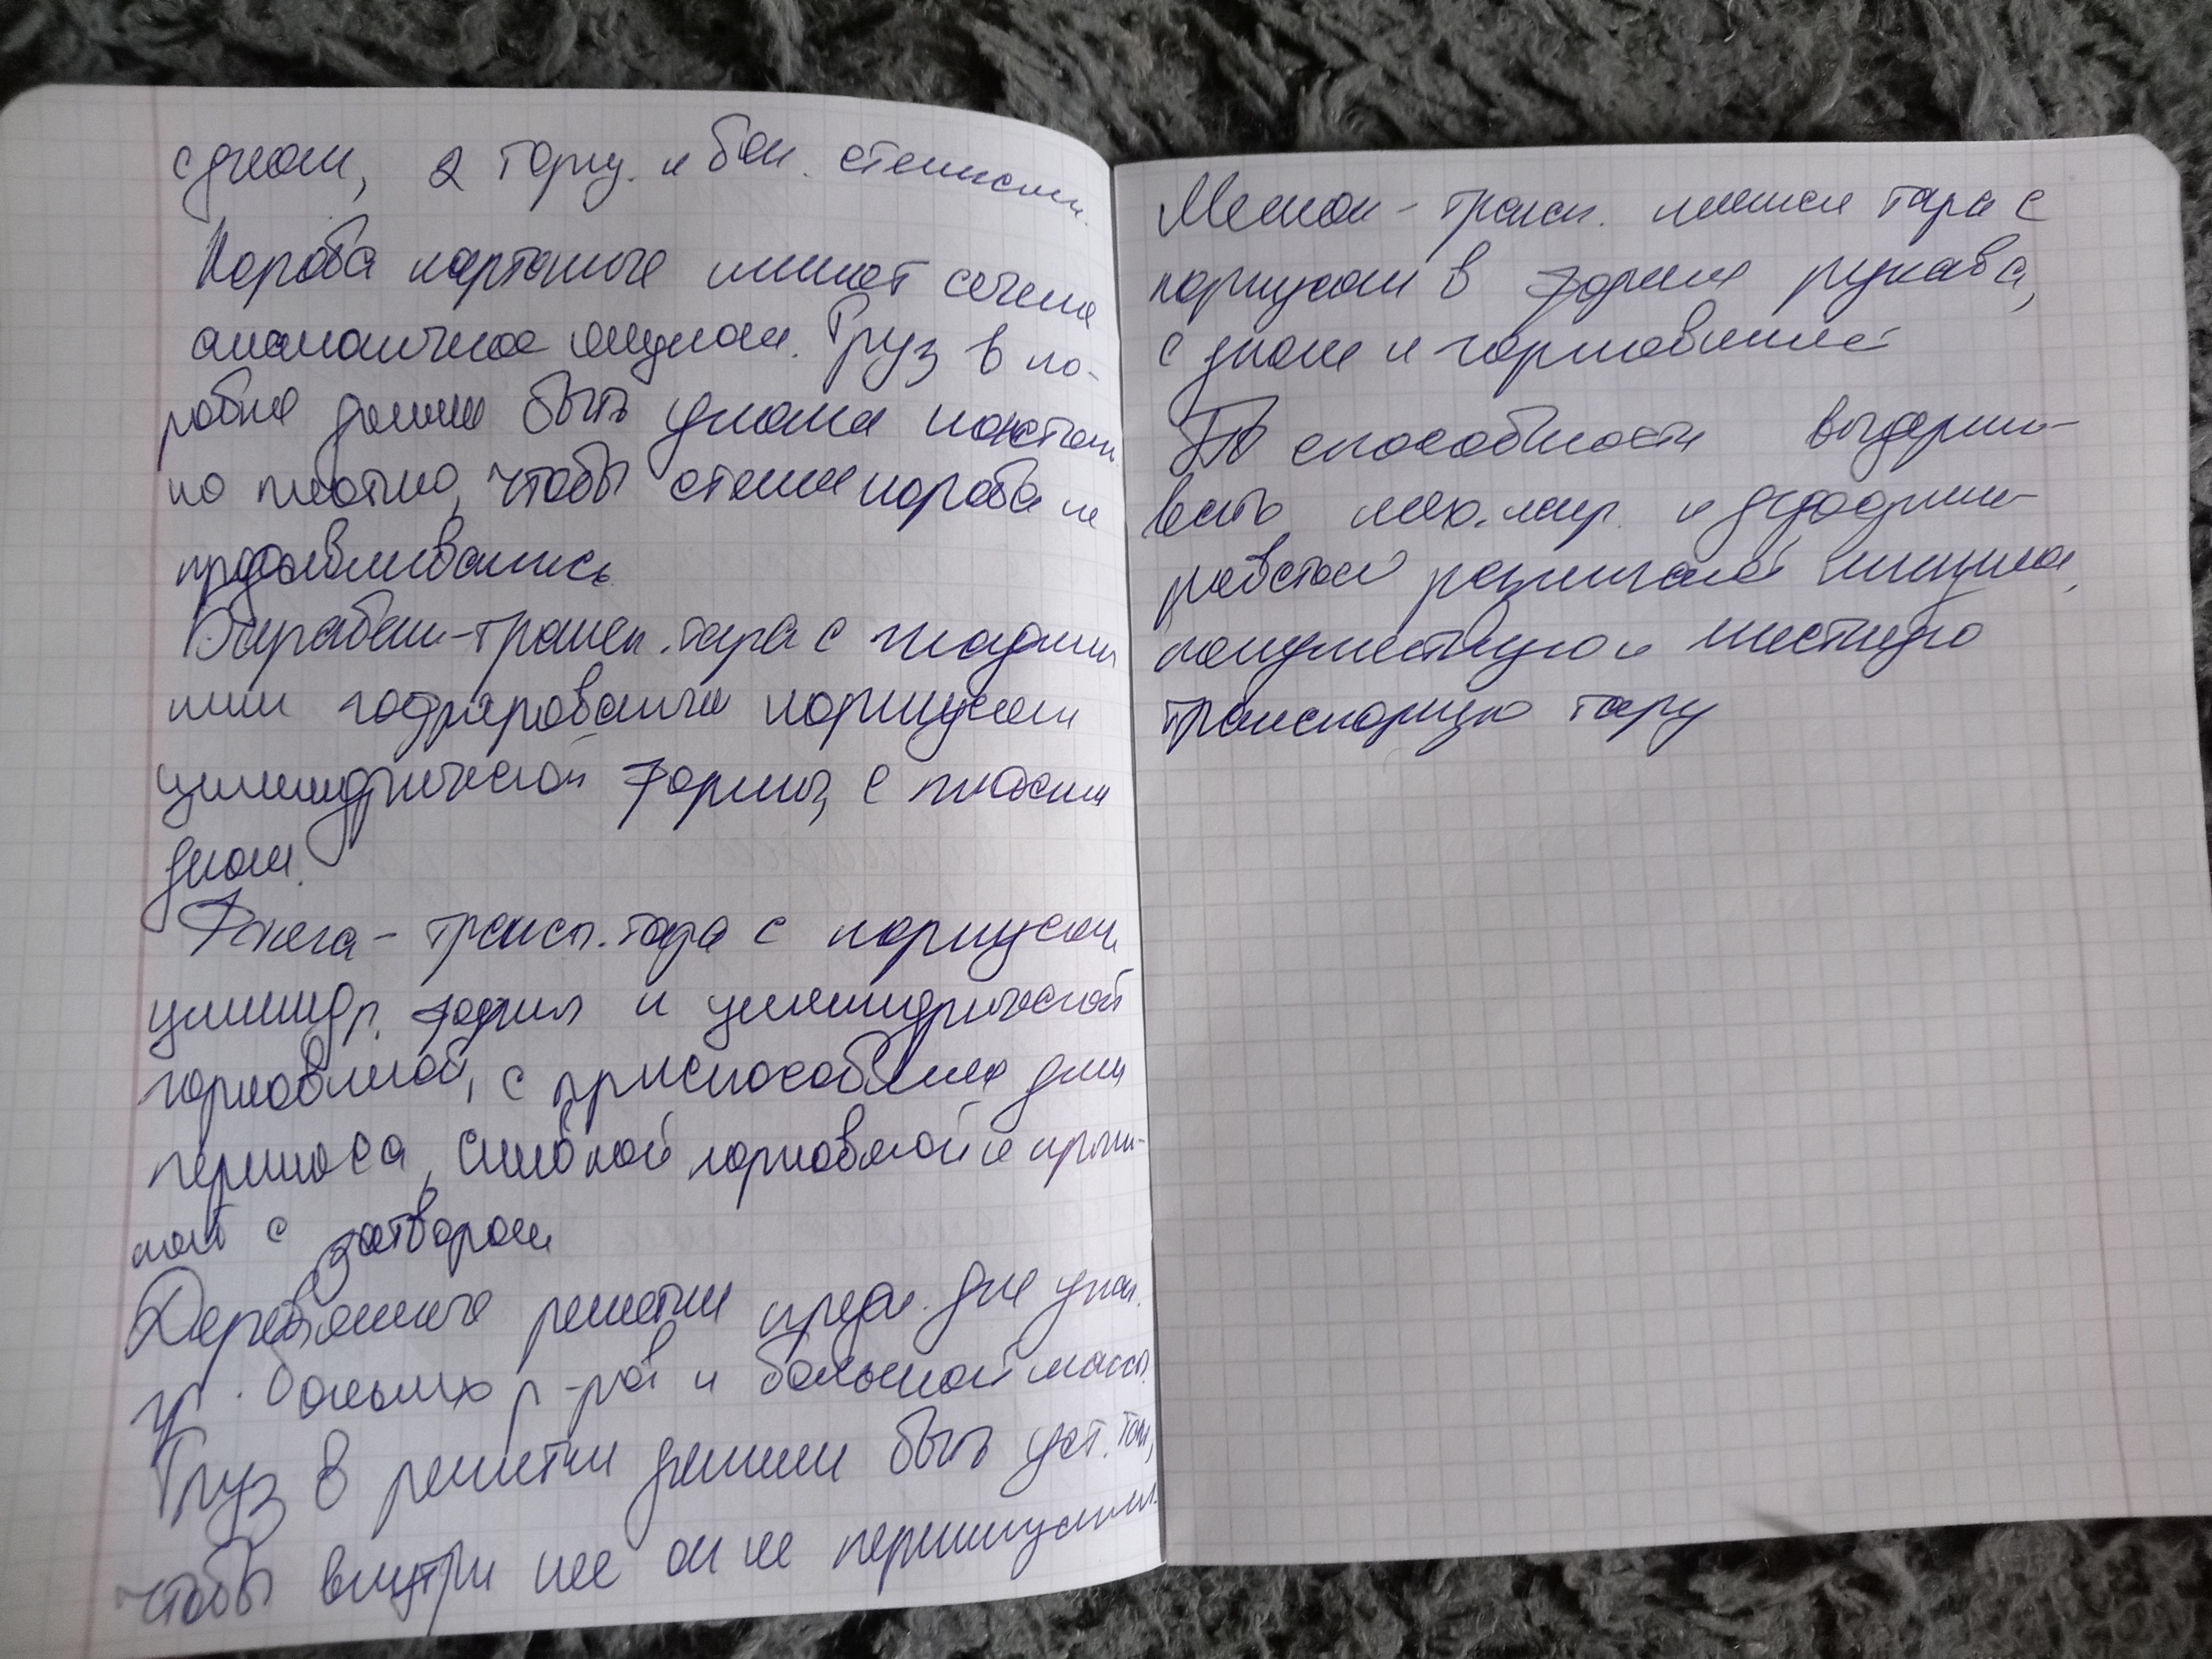 с дном, 2 торц. и бок. стенками.
Короба картоные имеют сечение
аналогичное ящикам. Груз в ко-
робке должен быть уложен настоль
ко плотно, чтобы стенки короба не
продавливались.
Барабан - трансп. тара с гладким
или гофрированым корпусом
цилиндрической формы, с плоским
дном.
Фляга - трансп. тара с корпусом
цилиндр. формы и цилиндрической
горловиной, с приспособлением для
переноса, сливной горловиной и крыш-
кой с затвором
Деревянные решетки предн. для упак.
гр. больших р-ров и большой массы.
Груз в решетки должен быть уст. так,
чтобы внутри нее он не перемещался.
Мешок - трансп. мягкая тара с
корпусом в форме рукава,
с дном и горловиной
По способности выдержи-
вать мех. нагр. и деформи-
роваться различают жесткую,
полужесткую и
транспорную тару